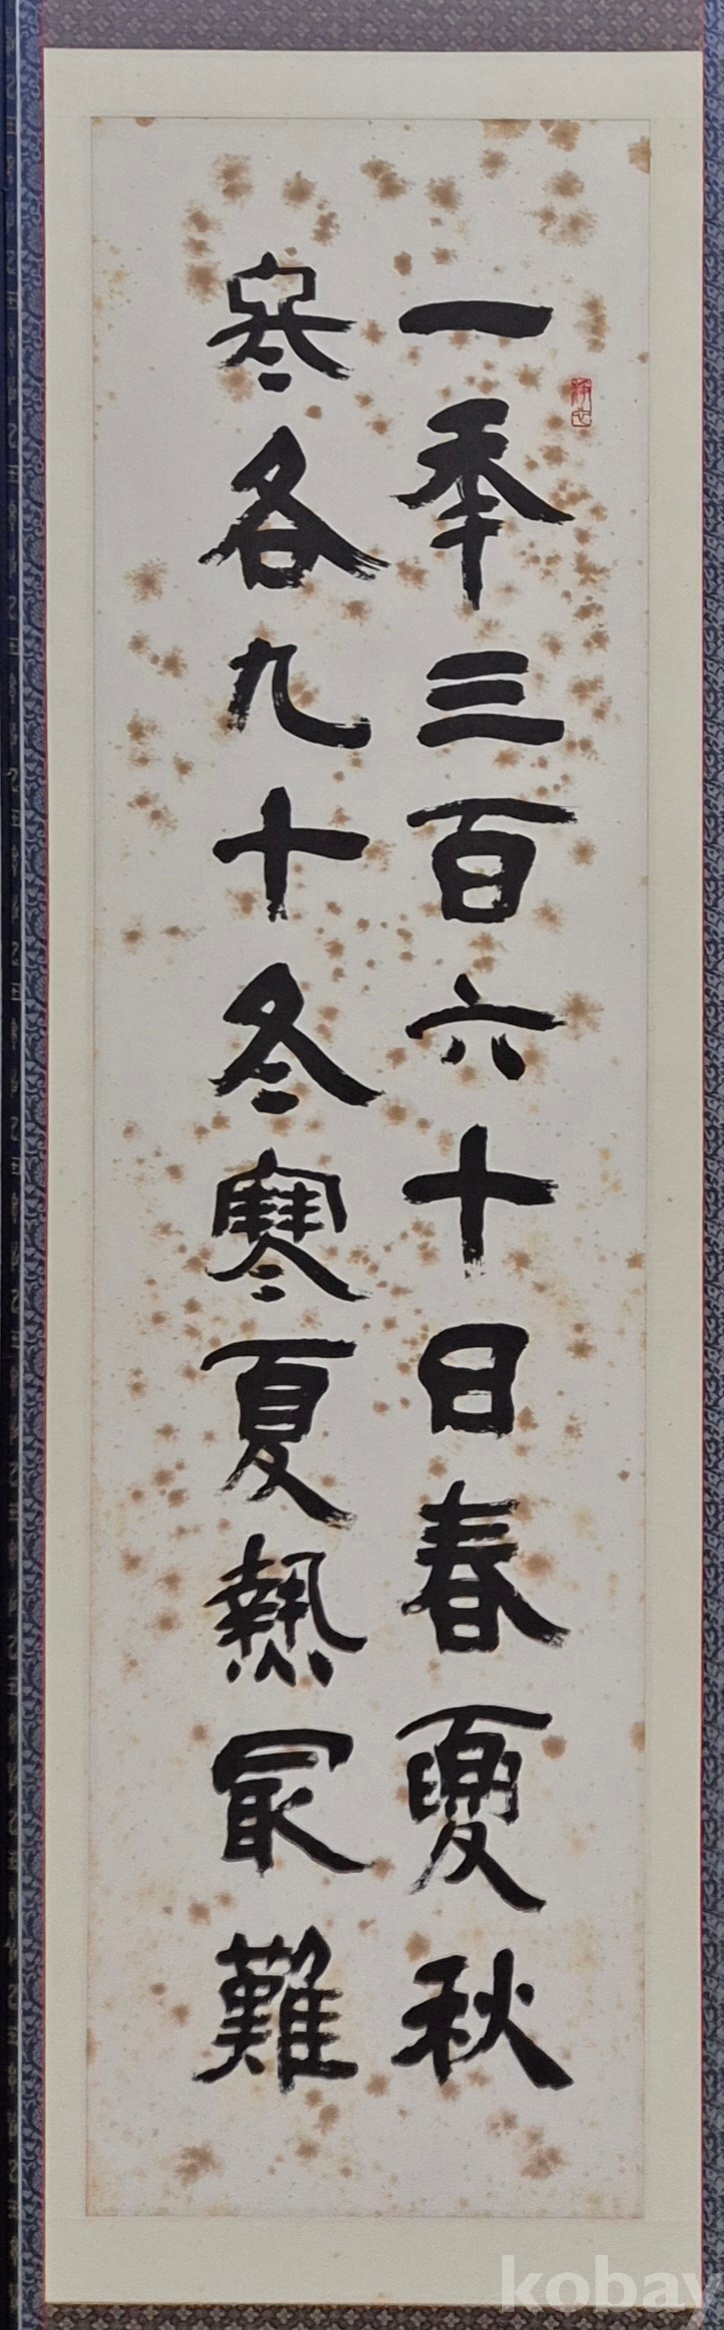 一秊三百六十日春夏秋
冬各九十冬寒夏熱最難
kobay